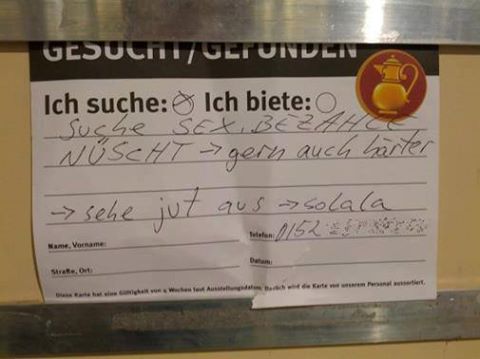 GESUCHT/GEFUNDEN
Ich suche: Ich biete:
Suche SEX, BEZAHLE
NÜSCHT → gern auch härter
→ sehe jut aus → solala
Telefon: 0152
Name, Vorname:
Datum:
Straße, Ort:
Diese Karte hat eine Gültigkeit von 4 Wochen laut Ausstellungsdatum. Danach wird die Karte von unserem Personal aussortiert.